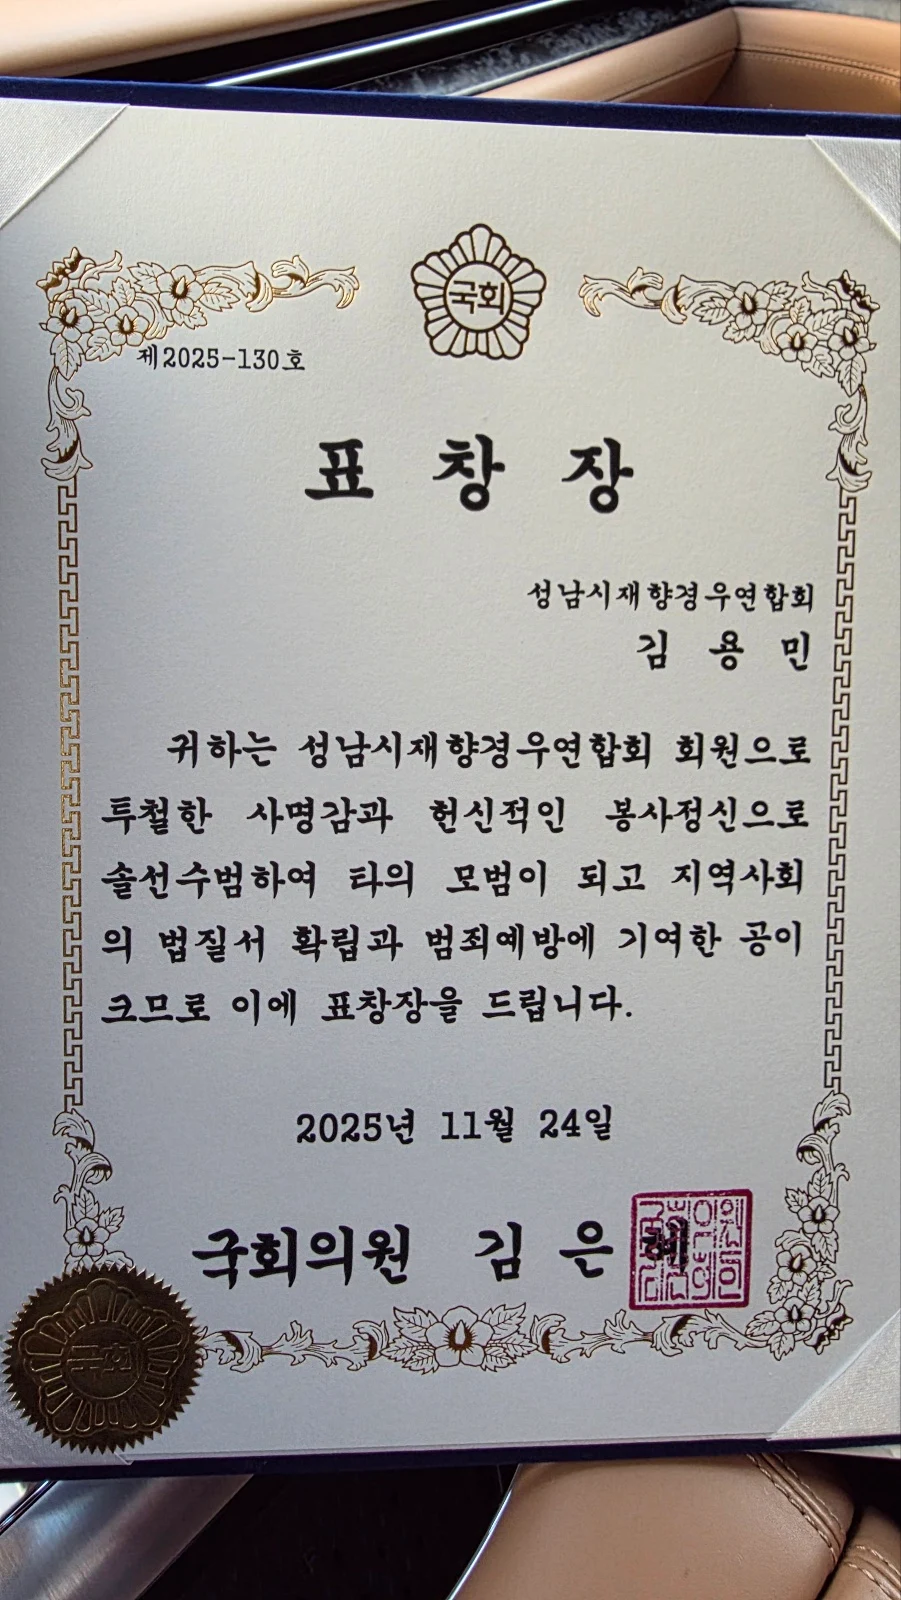 국회
제2025-130호
표 창 장
성남시재향경우연합회
김 용 민
귀하는 성남시재향경우연합회 회원으로
투철한 사명감과 헌신적인 봉사정신으로
솔선수범하여 타의 모범이 되고 지역사회
의 법질서 확립과 범죄예방에 기여한 공이
크므로 이에 표창장을 드립니다.
2025년 11월 24일
국회의원 김 은 혜
국회